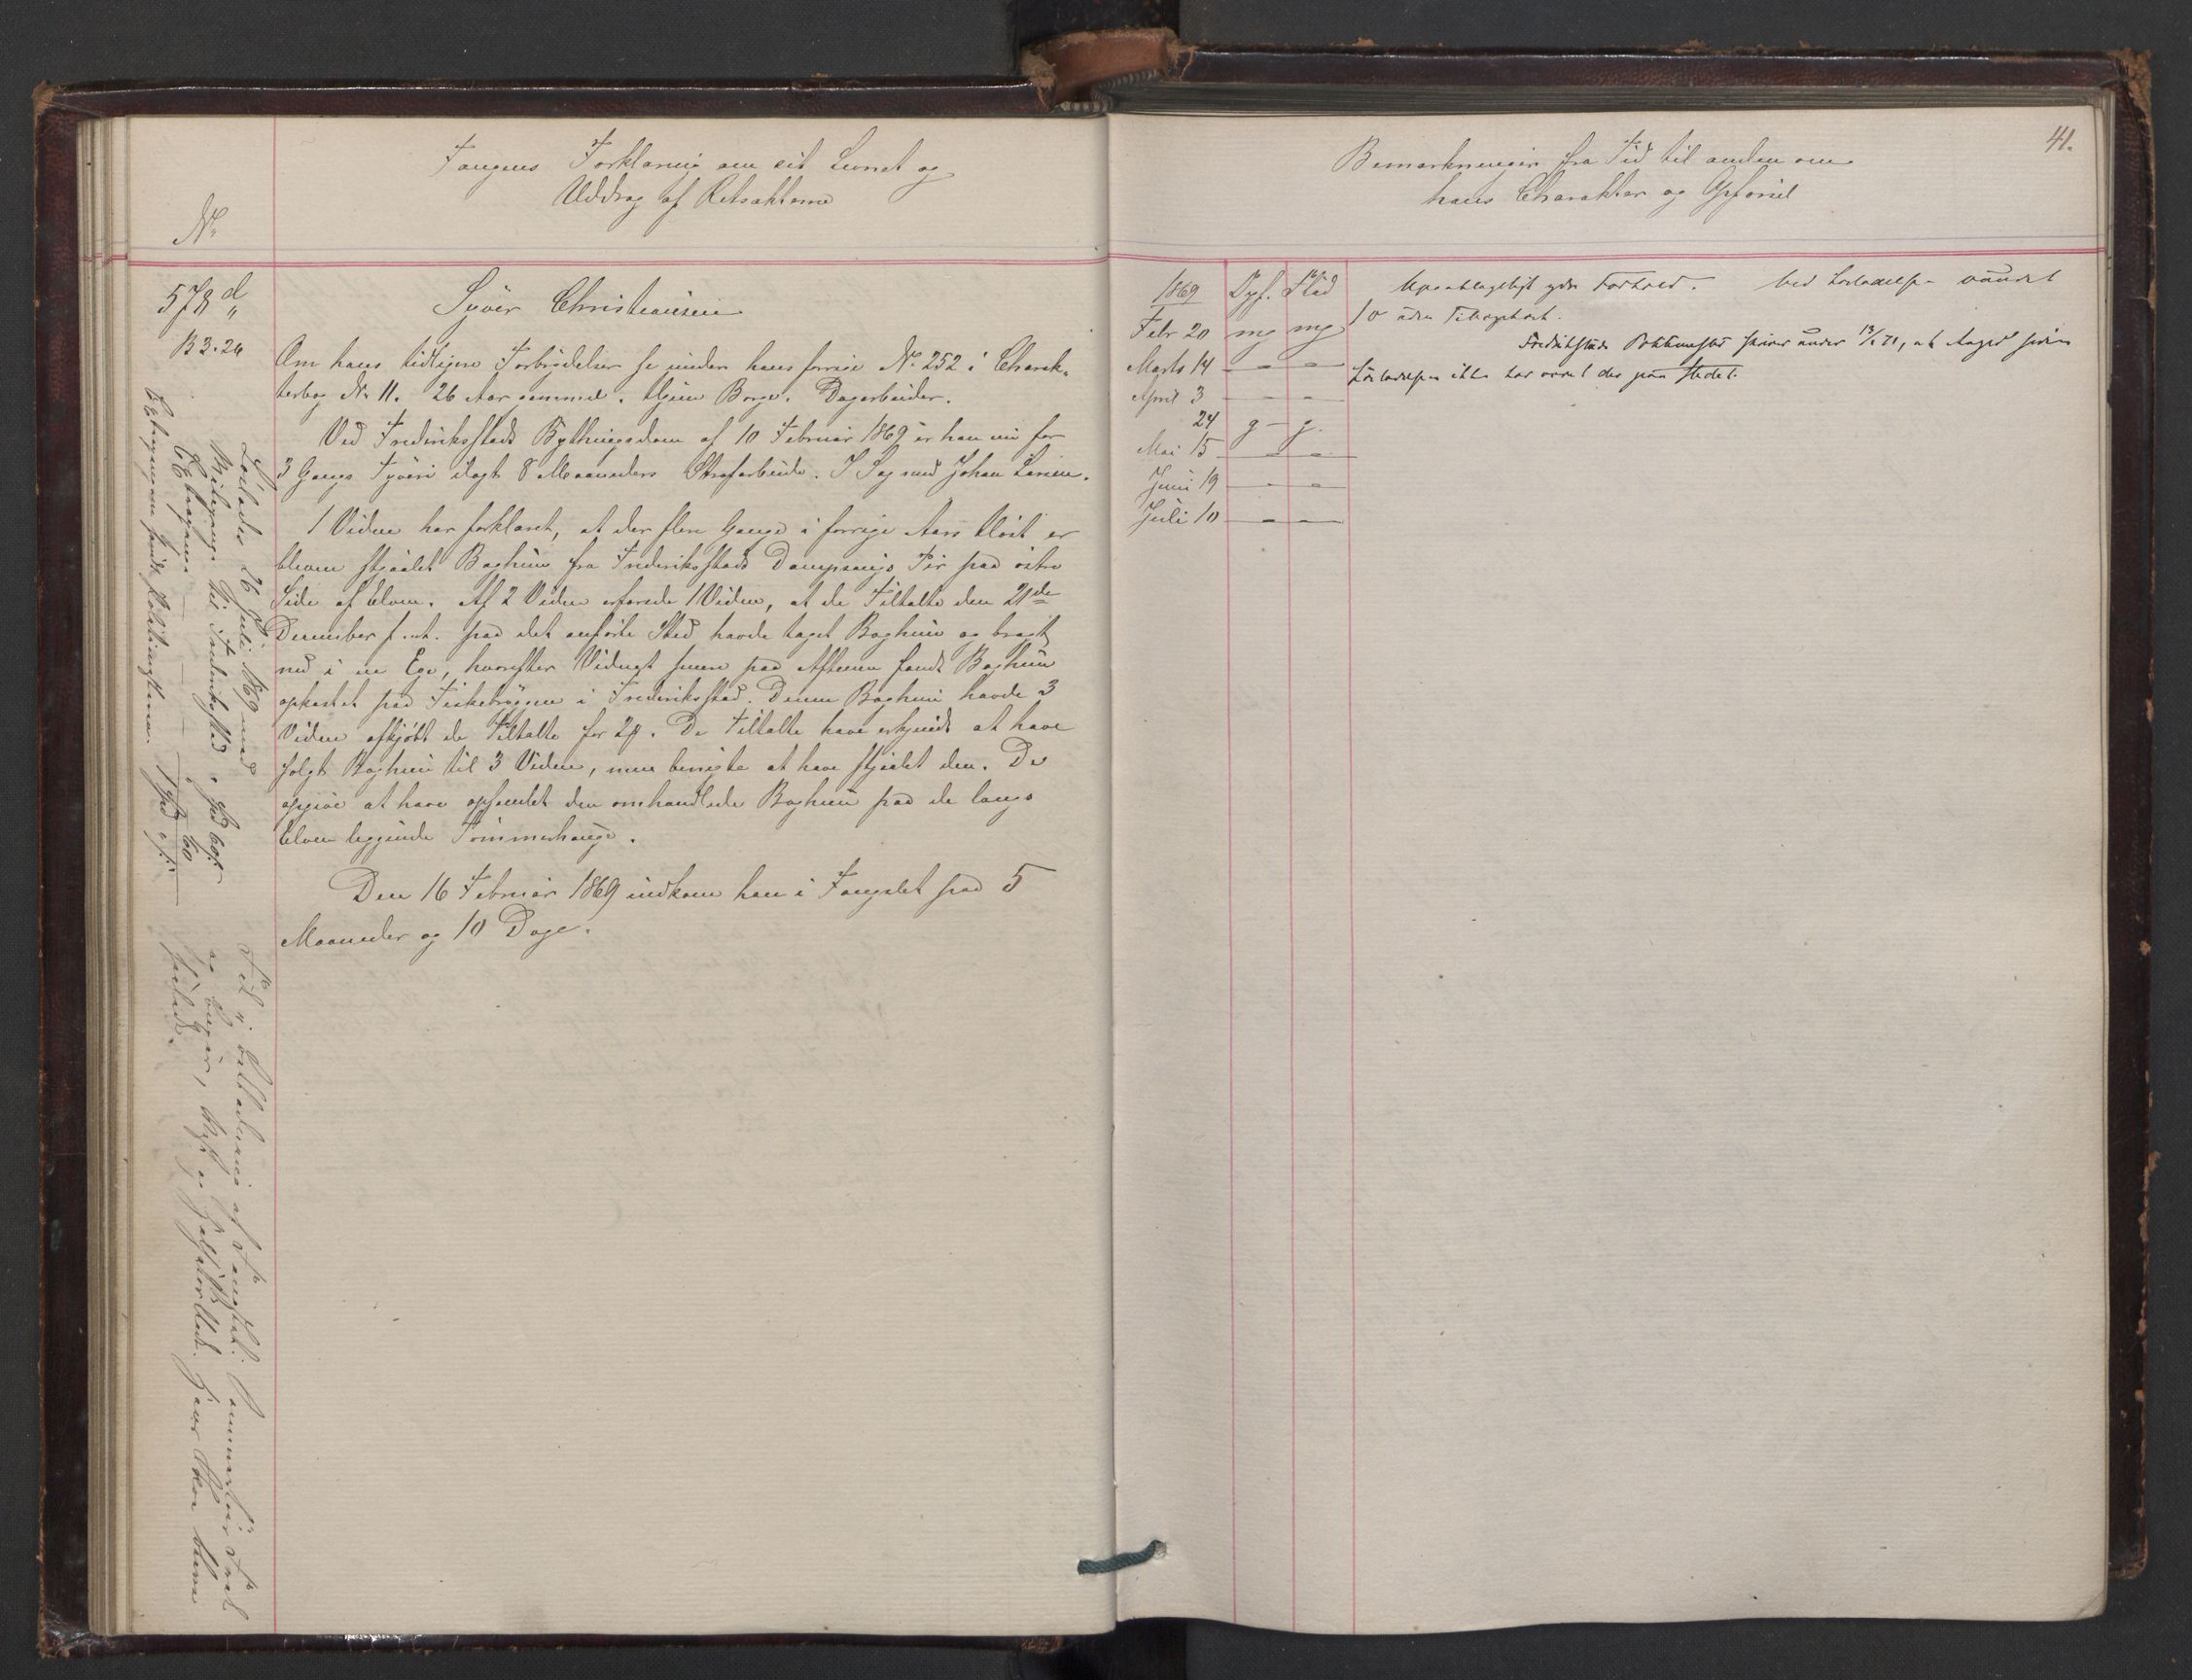 Fangens Forklaring om sit Levnet og
Uddrag af Retsakterne
No
578 d
B 2.26
Syver Christiansen
Om hans tidligere Forbrydelser se under hans forrige No 252 i Charak-
terbog No 11. 26 Aar gammel. Hjem Borge. Dagarbeider.
Ved Frederiksstads Bythingsdom af 10 Februar 1869 er han nu for
3 Gangs Tyveri ilagt 8 Maaneders Strafarbeide. I Sag med Johan Larsen.
1 Vidne har forklaret, at der flere Gange i forrige Aars Høst er
bleven stjaalet Baghun fra Frederiksstads Dampsaugs Tir paa østre
Side af Elven. Af 2 Vidner erfarede 1 Vidne, at de Tiltalte den 21de
December f. A. paa det anførte Sted havde taget Baghun og bragt
ned i en Ege, hvorefter Vidnet senere paa Aftenen fandt Baghun
opkastet paa Fiskebryggen i Frederiksstad. Denne Baghun havde 3
Vidne afkjøbt de Tiltalte for 2 ß. De Tiltalte have erkjendt at have
solgt Baghun til 3 Vidne, men benegte at have stjaalet den. De
opgive at have opsamlet den omhandlede Baghun paa de langs
Elven liggende Tømmerhauge.
Den 16 Februar 1869 indkom han i Fangslet paa 5
Maaneder og 10 Dage.
Løslades 26 Juli 1869 med
Til Frederiksstad
Bemærkninger fra Tid til anden om
hans Charakter og Opførsel
41.
1869 Opf. Flid
Febr 20 mg mg
Marts 14 — —
April 3 — —
24 g - g.
Mai 15 — —
Juni 19 — —
Juli 10 — —
Upaaklageligt ydre Forhold. Ved Løsladelsen
uden
Fredrikstads Politimester skriver under 13/1 71, at Angj siden
Løsladelsen ikke har været der paa Stedet.